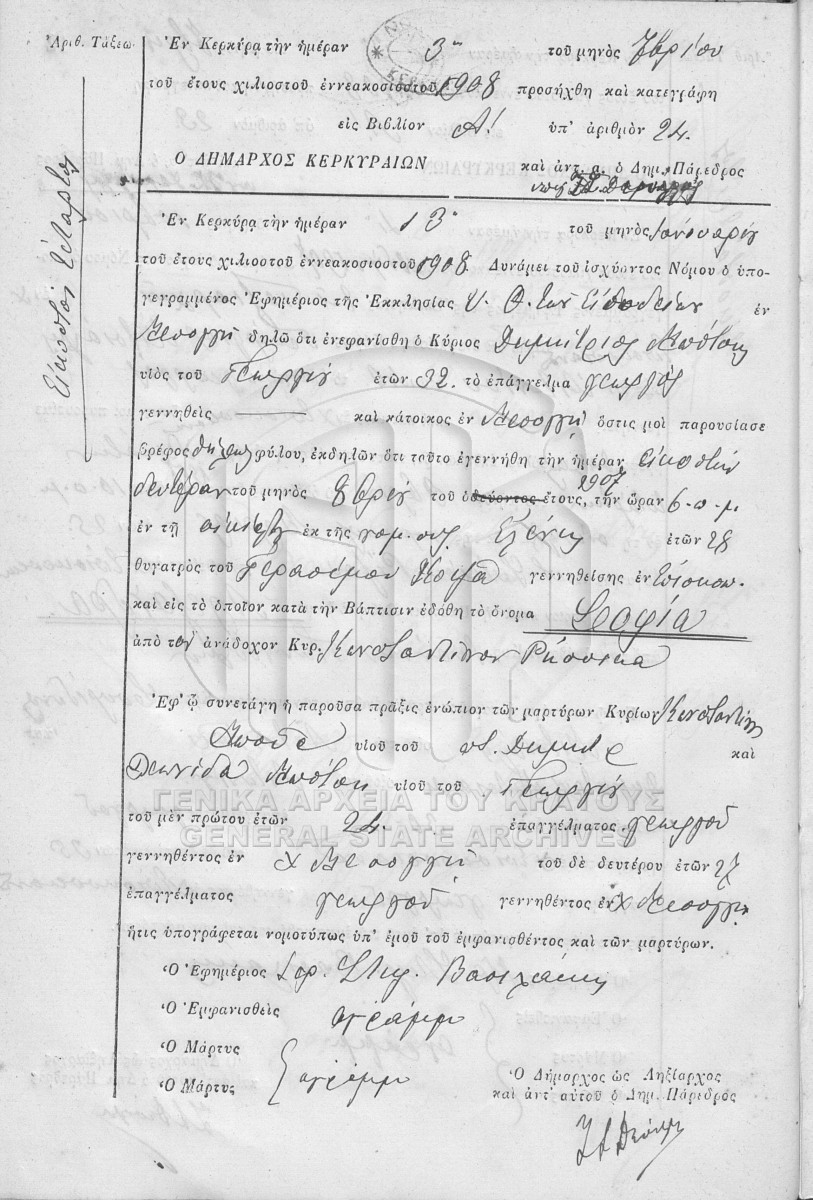 Ἀριθ. Τάξεω
Εἰκοστὸν τέταρτον
Ἐν Κερκύρᾳ τὴν ἡμέραν 3ῃ τοῦ μηνὸς 2βρίου
τοῦ ἔτους χιλιοστοῦ ἐννεακοσιοστοῦ 1908 προσήχθη καὶ κατεγράφη
εἰς Βιβλίον Α! ὑπ' ἀριθμὸν 24.
Ὁ ΔΗΜΑΡΧΟΣ ΚΕΡΚΥΡΑΙΩΝ καὶ ἀντ. α. ὁ Δημ. Πάρεδρος
Ἐν Κερκύρᾳ τὴν ἡμέραν 13ῃ τοῦ μηνὸς Ἰανουαρίου
τοῦ ἔτους χιλιοστοῦ ἐννεακοσιοστοῦ 1908. Δυνάμει τοῦ ἰσχύοντος Νόμου ὁ ὑπο-
γεγραμμένος Ἐφημέριος τῆς Ἐκκλησίας Υ. Θ. των Εἰσοδείων ἐν
Μεσογγῇ δηλῶ ὅτι ἐνεφανίσθη ὁ Κύριος Δημήτριος Μπότσης
υἱὸς τοῦ Γεωργίου ἐτῶν 32. τὸ ἐπάγγελμα γεωργὸς
γεννηθεὶς καὶ κάτοικος ἐν Μεσογγῇ ὅστις μοὶ παρουσίασε
βρέφος θήλεος φύλου, ἐκδηλῶν ὅτι τοῦτο ἐγεννήθη τὴν ἡμέραν εἰκοστὴν
δευτέραν τοῦ μηνὸς 8βρίου τοῦ ὁδεύοντος 1907 ἔτους, τὴν ὥραν 6-π-μ
ἐν τῇ οἰκίᾳ ἐκ τῆς νομ. συζ. Ἑλένης ἐτῶν 28
θυγατρὸς τοῦ Γερασίμου γεννηθείσης ἐν
καὶ εἰς τὸ ὁποῖον κατὰ τὴν Βάπτισιν ἐδόθη τὸ ὄνομα Σοφία
ἀπὸ τὸν ἀνάδοχον Κυρ. Κωνσταντῖνον
Ἐφ' ᾧ συνετάγη ἡ παροῦσα πρᾶξις ἐνώπιον τῶν μαρτύρων Κυρίων Κωνσταντίνου
υἱοῦ τοῦ καὶ
Λεωνίδα Μπότση υἱοῦ τοῦ Γεωργίου
ΓΕΝΙΚΑ ΑΡΧΕΙΑ ΤΟΥ ΚΡΑΤΟΥΣ
τοῦ μὲν πρώτου ἐτῶν 24. ἐπαγγέλματος γεωργοῦ
GENERAL STATE ARCHIVES
γεννηθέντος ἐν Χ Μεσογγῇ τοῦ δὲ δευτέρου ἐτῶν 27
ἐπαγγέλματος γεωργοῦ γεννηθέντος ἐν Χ Μεσογγῇ
ἥτις ὑπογράφεται νομοτύπως ὑπ' ἐμοῦ τοῦ ἐμφανισθέντος καὶ τῶν μαρτύρων.
Ὁ Ἐφημέριος Ἱερ. Σπυρ. Βασιλάκης
Ὁ Ἐμφανισθεὶς ἀγράμμ
Ὁ Μάρτυς
Ὁ Μάρτυς ἀγράμμ
Ὁ Δήμαρχος ὡς Ληξίαρχος
καὶ ἀντ' αὐτοῦ ὁ Δημ. Πάρεδρὸς